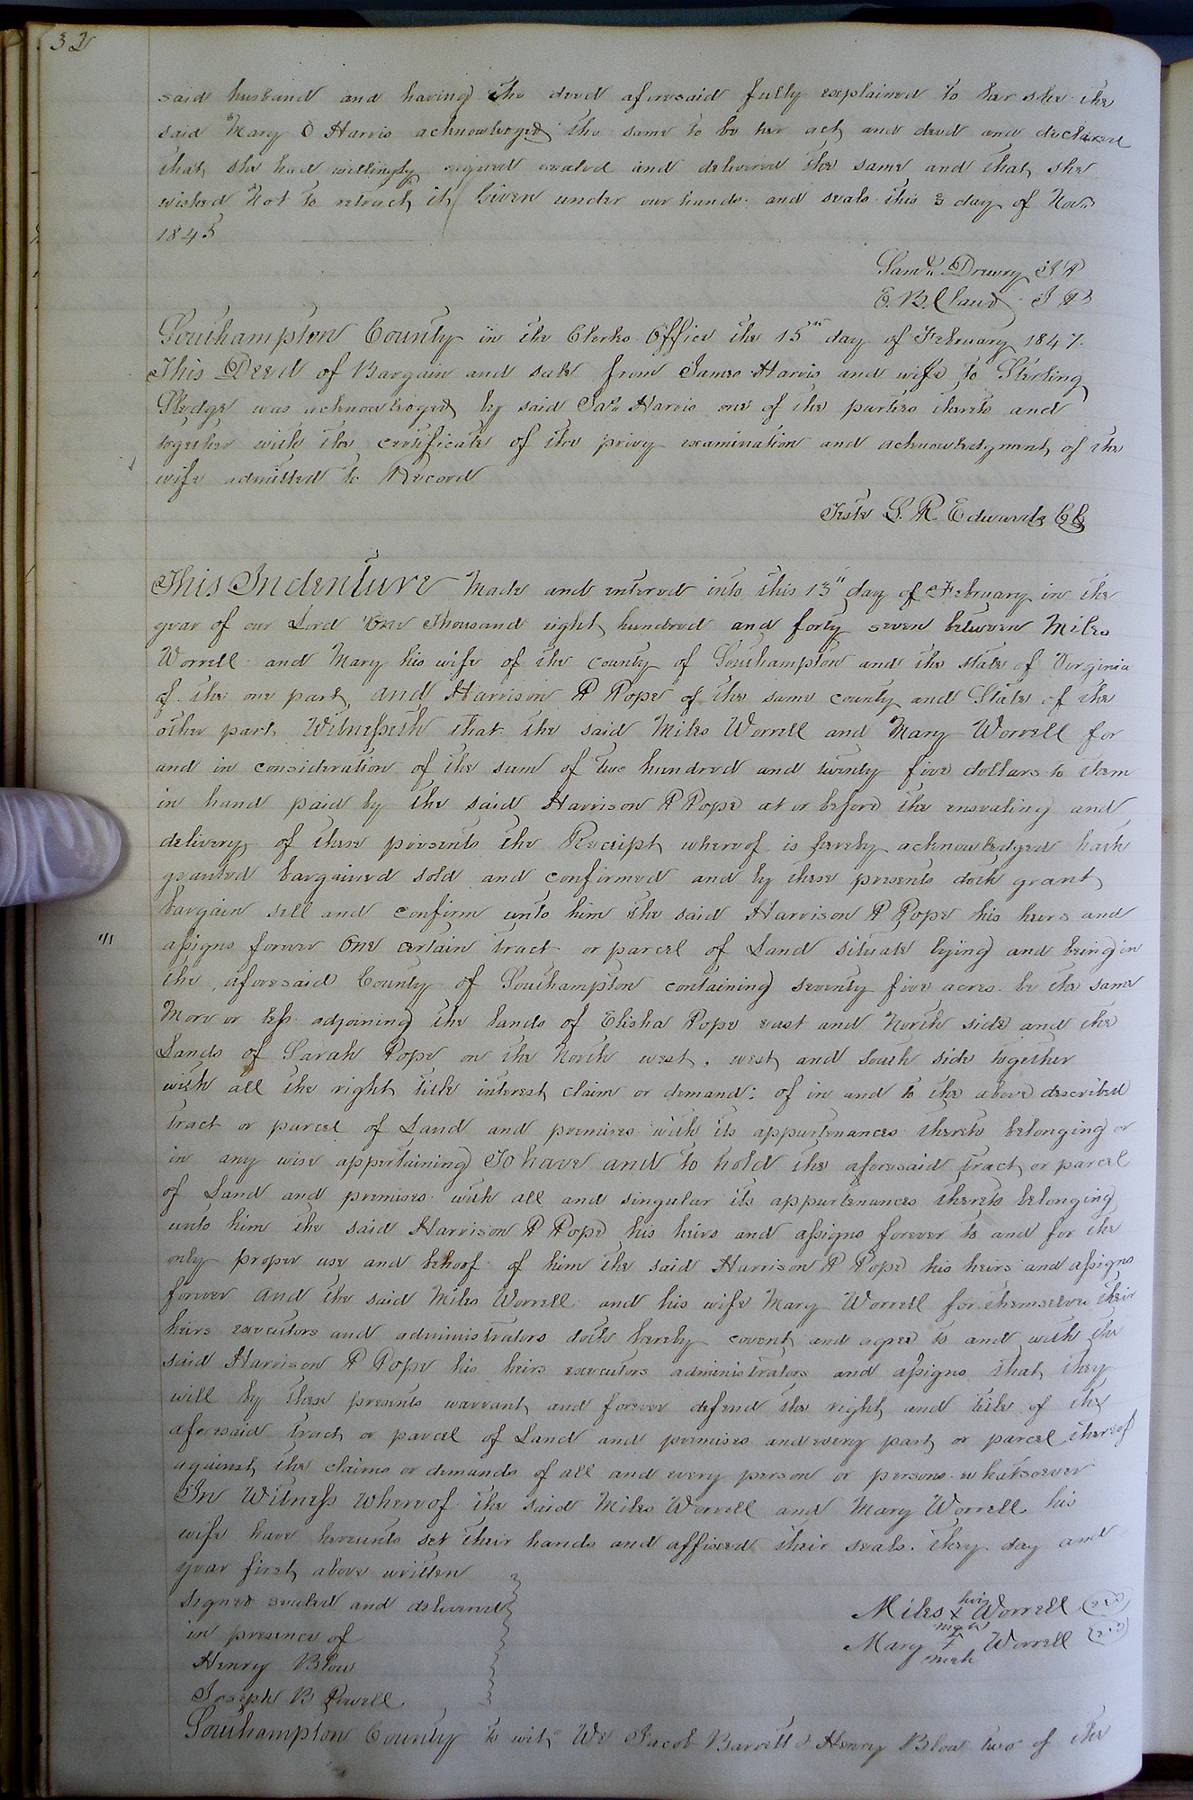 32
said husband and having the deed aforesaid fully explained to her she the
said Mary O Harris acknowledged the same to be her act and deed and declared
that she had willingly signed sealed and delivered the same and that she
wished Not to retract it Given under our hands and seals this 3 day of Nov.
1845
Saml. Drewry J P
E. B. Claud J P
Southampton County in the Clerks Office the 15th day of February 1847.
This Deed of Bargain and sale from James Harris and wife to Sterling
Sledge was acknowledged by said Jas Harris one of the parties thereto and
together with the certificate of the privy examination and acknowledgment of the
wife admitted to Record
Teste L. R. Edwards CC
This Indenture Made and entered into this 13th day of February in the
year of our Lord One Thousand eight hundred and forty seven between Miles
Worrell and Mary his wife of the county of Southampton and the state of Virginia
of the one part, and Harrison P Pope of the same county and State of the
other part Witnesseth that the said Miles Worrell and Mary Worrell for
and in consideration of the sum of two hundred and twenty five dollars to them
in hand paid by the said Harrison P Pope at or before the ensealing and
delivery of these presents the Receipt whereof is hereby acknowledged hath
granted bargained sold and confirmed and by these presents doth grant
bargain sell and confirm unto him the said Harrison P Pope his heirs and
assigns forever One certain tract or parcel of Land situate lying and being in
the aforesaid County of Southampton containing seventy five acres be the same
More or less adjoining the lands of Elisha Pope east and North side and the
Lands of Sarah Pope on the North west. west and south side together
with all the right title interest claim or demand: of in and to the above described
tract or parcel of Land and premises with its appurtenances thereto belonging or
in any wise appertaining To have and to hold the aforesaid tract or parcel
of Land and premises with all and singular its appurtenances thereto belonging
unto him the said Harrison P Pope his heirs and assigns forever to and for the
only proper use and behoof of him the said Harrison P Pope his heirs and assigns
forever And the said Miles Worrell and his wife Mary Worrell for themselves their
heirs executors and administrators doth hereby covent and agree to and with the
said Harrison P Pope his heirs executors administrators and assigns that they
will by these presents warrant and forever defend the right and title of the
aforesaid tract or parcel of Land and premises and every part or parcel thereof
against the claims or demands of all and every person or persons whatsoever
In Witness whereof the said Miles Worrell and Mary Worrell his
wife have hereunto set their hands and affixed their seals they day and
year first above written
signed sealed and delivered
in presence of
Henry Blow
Joseph B Powell
his
Miles x Worrell
mark
Mary + Worrell
mark
Southampton County to wit We Jacob Barrett & Henry Blow two of the